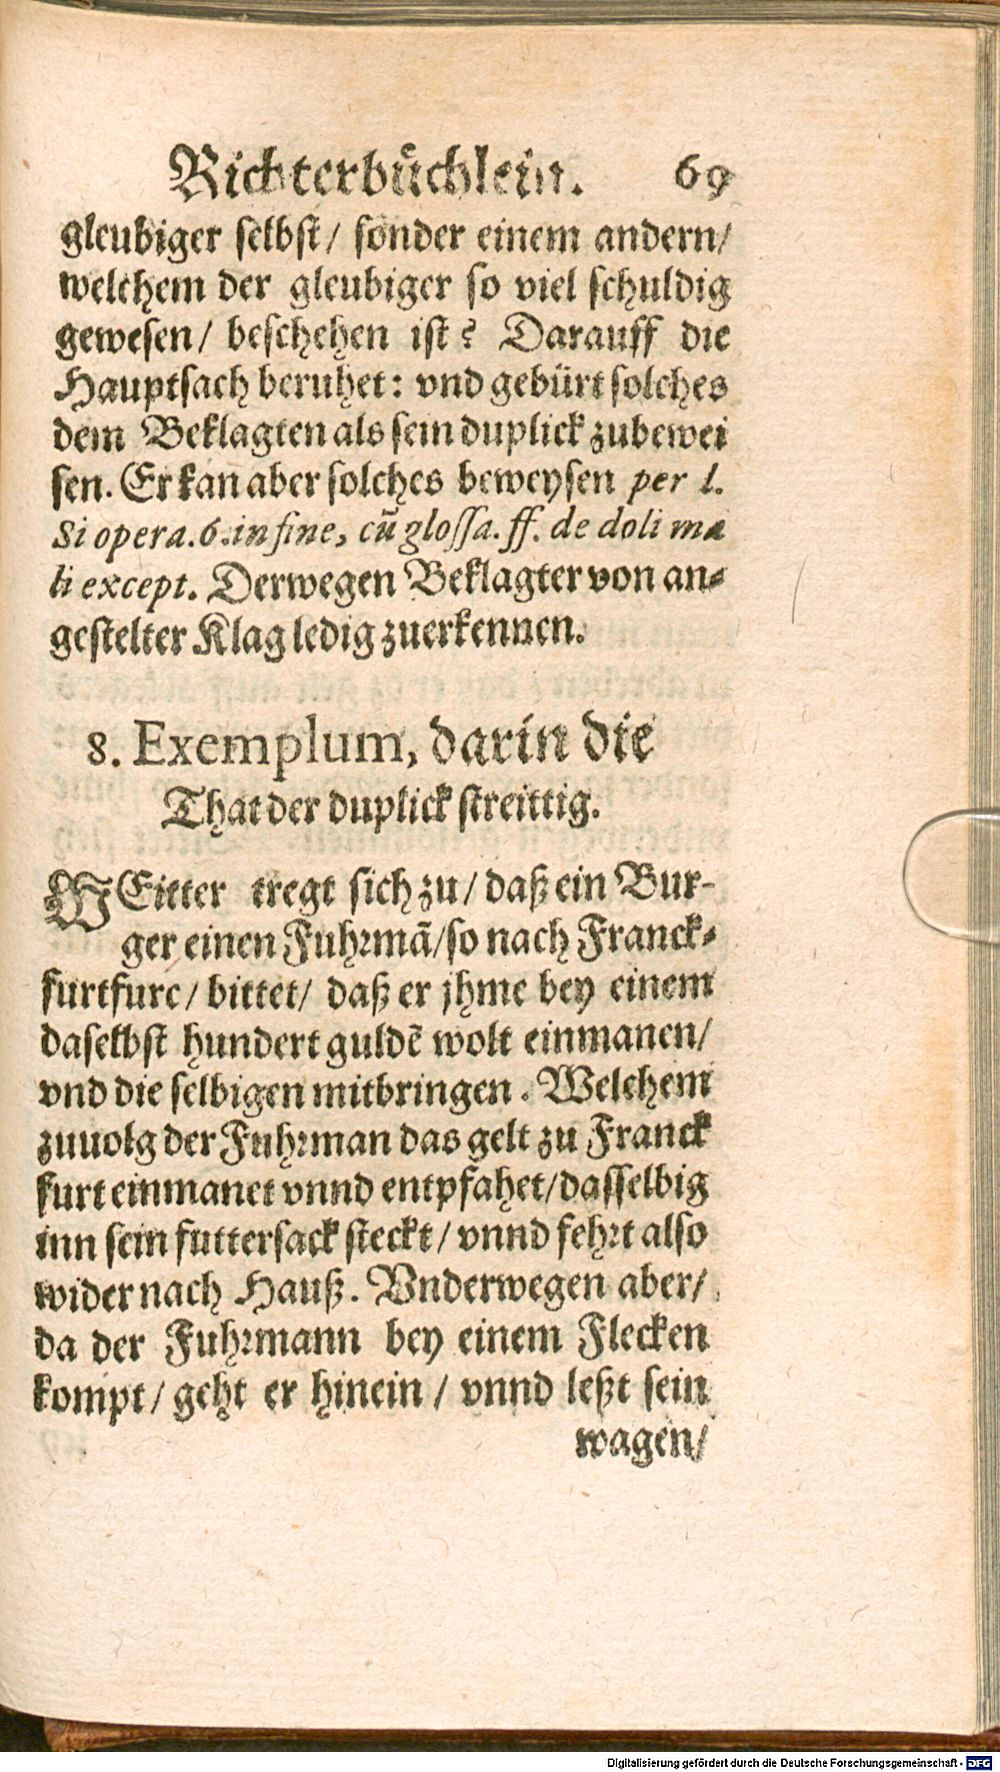 Richterbüchlein. 69
gleubiger selbst/ sonder einem andern/
welchem der gleubiger so viel schuldig
gewesen/ beschehen ist? Darauff die
Hauptsach beruhet: vnd gebürt solches
dem Beklagten als sein duplick zubewei
sen. Er kan aber solches beweysen per l.
Si opera.6.in fine, cū glossa. ff. de doli ma
li except. Derwegen Beklagter von an⸗
gestelter Klag ledig zuerkennen.
8. Exemplum, darin die
That der duplick streittig.
WEitter tregt sich zu/ daß ein Bur-
ger einen Fuhrmā/so nach Franck⸗
furt furc/ bittet/ daß er jhme bey einem
daselbst hundert guldē wolt einmanen/
vnd die selbigen mitbringen. Welchem
zuuolg der Fuhrman das gelt zu Franck
furt einmanet vnnd entpfahet/dasselbig
inn sein futtersack steckt/ vnnd fehrt also
wider nach Hauß. Vnderwegen aber/
da der Fuhrmann bey einem Flecken
kompt/ geht er hinein/ vnnd leßt sein
wagen/
Digitalisierung gefördert durch die Deutsche Forschungsgemeinschaft - DFG